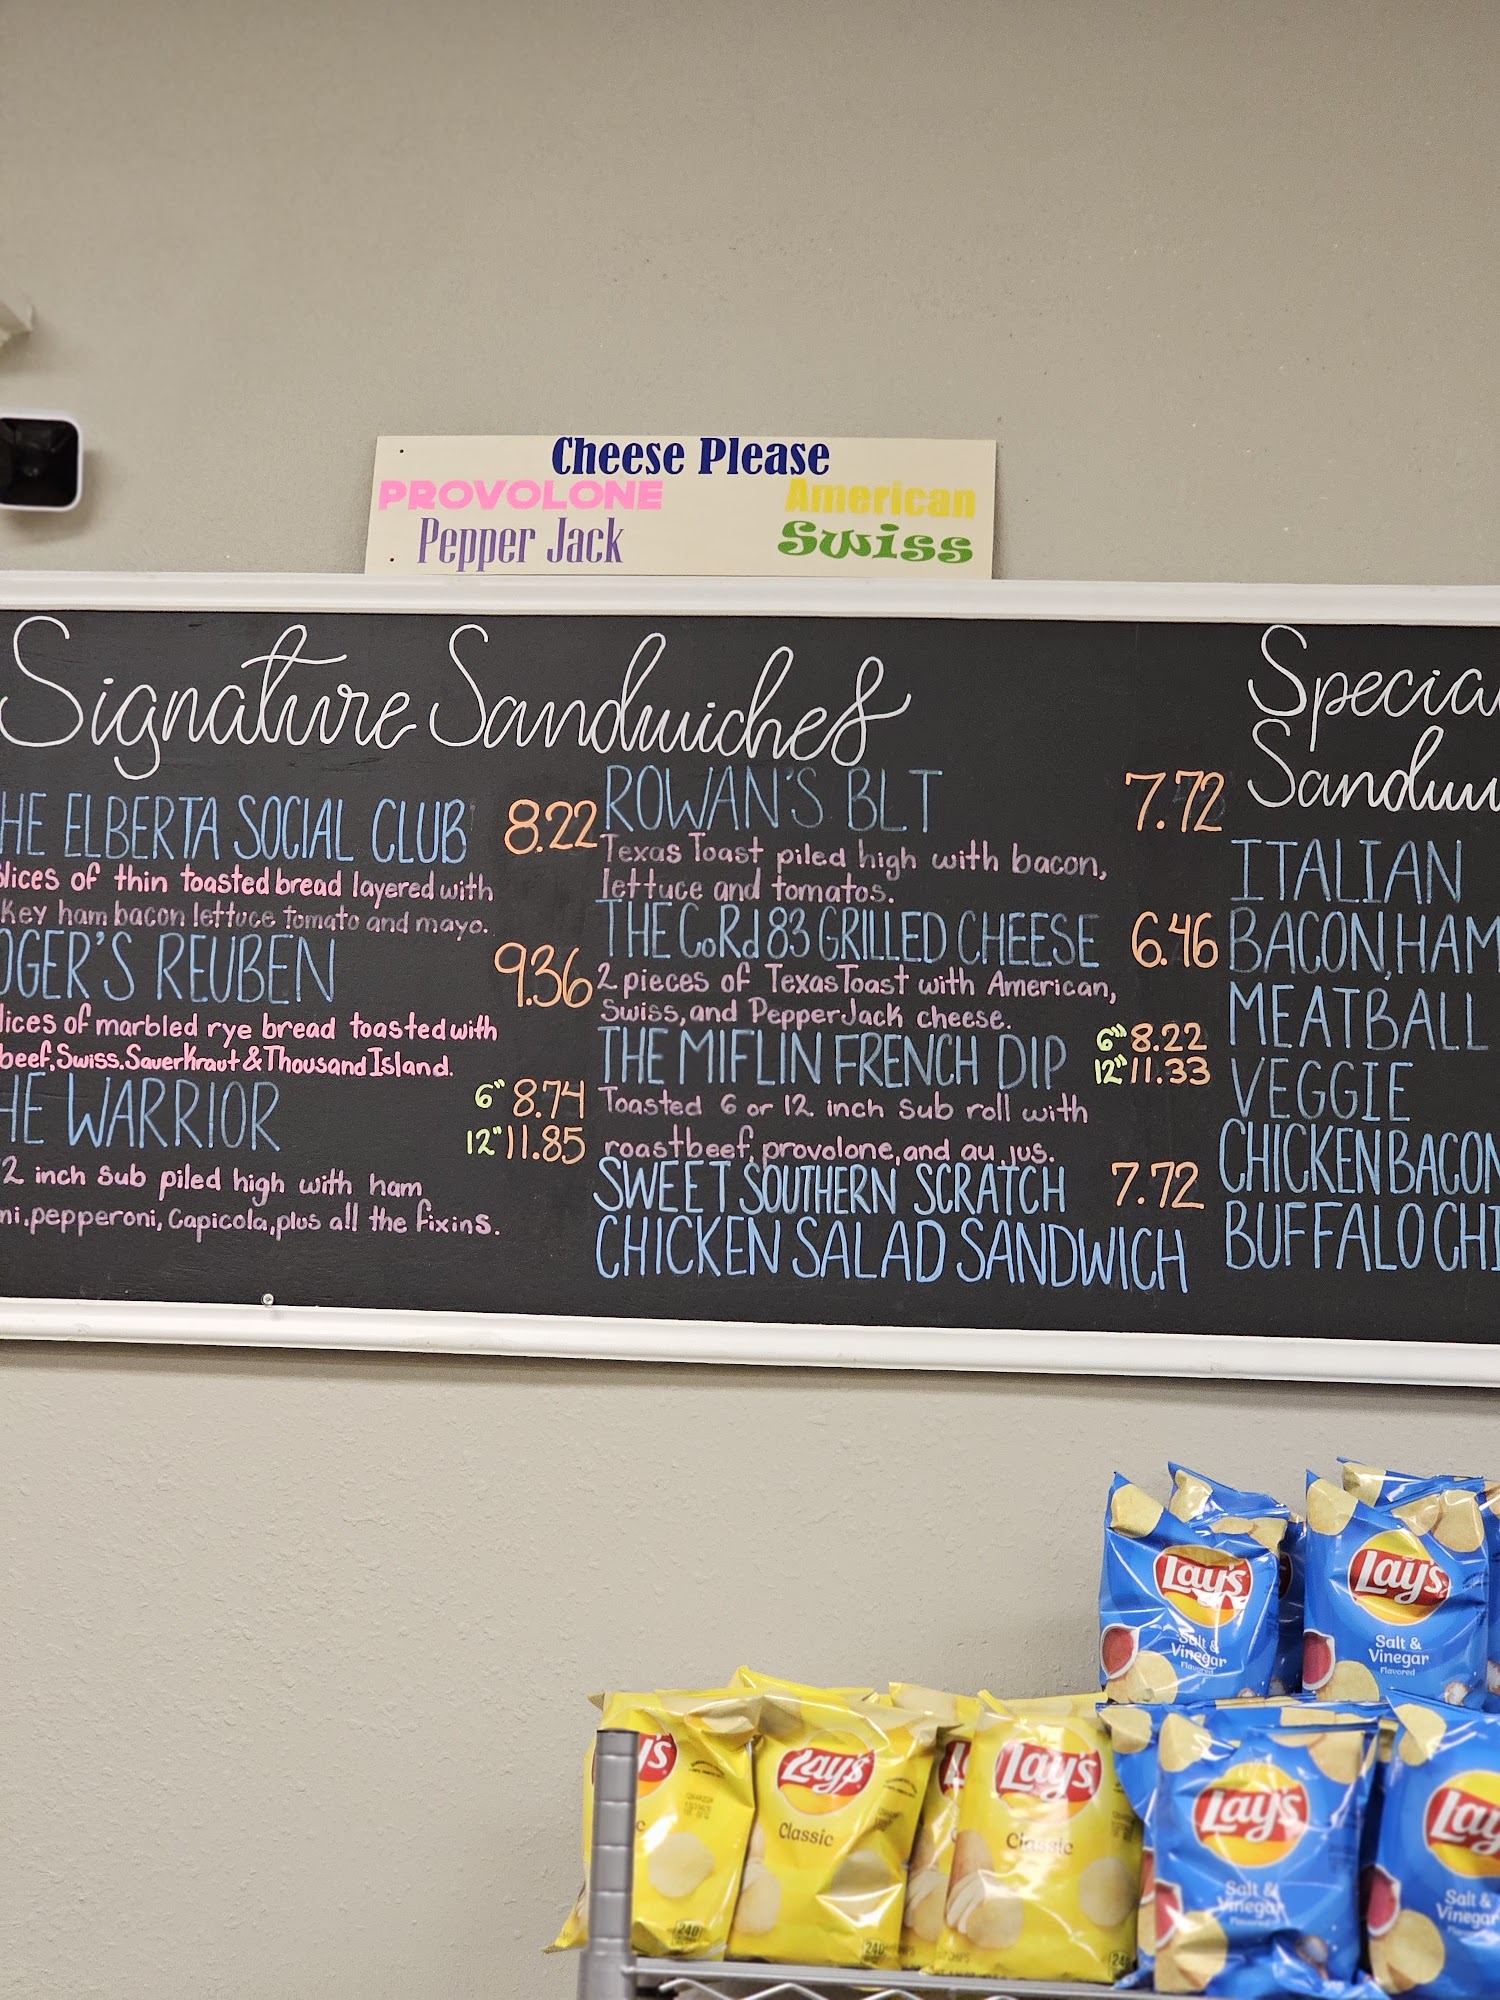 Cheese Please
PROVOLONE American
Pepper Jack Swiss
Signature Sandwiches
HE ELBERTA SOCIAL CLUB 8.22
lices of thin toasted bread layered with
key ham bacon lettuce tomato and mayo.
OGER'S REUBEN 9.36
lices of marbled rye bread toasted with
beef, Swiss. Sauerkraut & Thousand Island.
HE WARRIOR 6" 8.74
12" 11.85
2 inch sub piled high with ham
mi, pepperoni, Capicola, plus all the fixins.
ROWAN'S BLT 7.72
Texas Toast piled high with bacon,
lettuce and tomatos.
THE CoRd 83 GRILLED CHEESE 6.46
2 pieces of Texas Toast with American,
Swiss, and Pepper Jack cheese.
THE MIFLIN FRENCH DIP 6" 8.22
12" 11.33
Toasted 6 or 12 inch sub roll with
roastbeef, provolone, and au jus.
SWEET SOUTHERN SCRATCH 7.72
CHICKEN SALAD SANDWICH
Specia
Sandw
ITALIAN
BACON, HAM
MEATBALL
VEGGIE
CHICKEN BACON
BUFFALO CHI
Lay's
Salt &
Vinegar
Flavored
Lay's
Salt &
Vinegar
Flavored
Lay's
Lay's
Classic
240
Lay's
Classic
240
Lay's
Salt &
Vinegar
Flavored
Lay's
Salt &
Vinegar